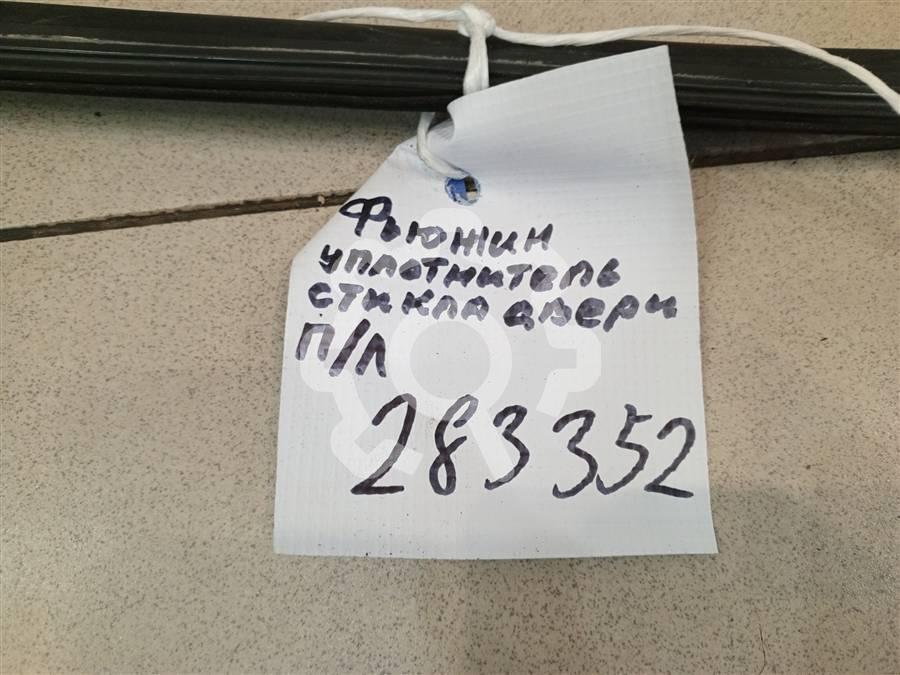 Фьюжин
уплотнитель
стикла двери
П/Л
283352